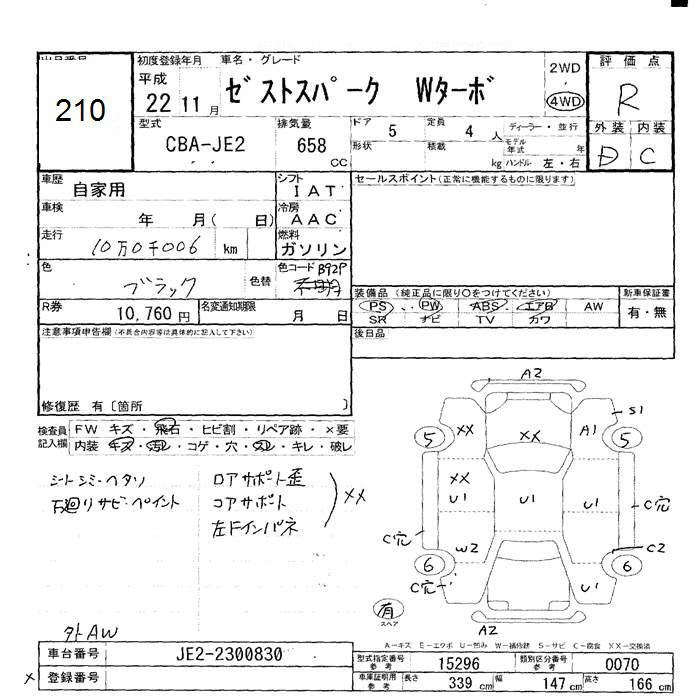 出品番号
210
初度登録年月
平成
22 11 月
車名・グレード
ゼストスパーク Wターボ
2WD
4WD
評価点
R
外装 内装
D C
型式
CBA-JE2
排気量
658
cc
ドア
5
形状
定員
4 人
積載
kg
ディーラー・並行
モデル年式 年
ハンドル 左・右
車歴
自家用
シフト
IAT
セールスポイント(正常に機能するものに限ります)
車検
年 月( 日)
冷房
AAC
走行
10万0千006 km
燃料
ガソリン
色
ブラック
色替
色コード B92P
装備品 (純正品に限り○をつけてください)
PS ・ PW ABS エアB AW
SR ナビ TV カワ
新車保証書
有・無
R券
10,760 円
名変通知期限
月 日
後日品
注意事項申告欄(不具合内容等は具体的に記入して下さい)
修復歴 有〔箇所 〕
検査員記入欄
FW キズ・飛石・ヒビ割・リペア跡・×要
内装 キズ・汚レ・コゲ・穴・スレ・キレ・破レ
シートシミ・ヘタリ
下廻りサビ・ペイント
ロアサポート歪
コアサポート
左Fインパネ
XX
外AW
A2
S1
5
XX
XX
A1
5
XX
U1
U1
U1
C穴
C穴
W2
C2
6
6
C穴
U1
有
スペア
A2
A-キズ E-エクボ U-凹み W-補修跡 S-サビ C-腐食 XX-交換済
車台番号
JE2-2300830
× 登録番号
型式指定番号
参考
15296
類別区分番号
参考
0070
車庫証明用
参考
長さ 339 cm 幅 147 cm 高さ 166 cm